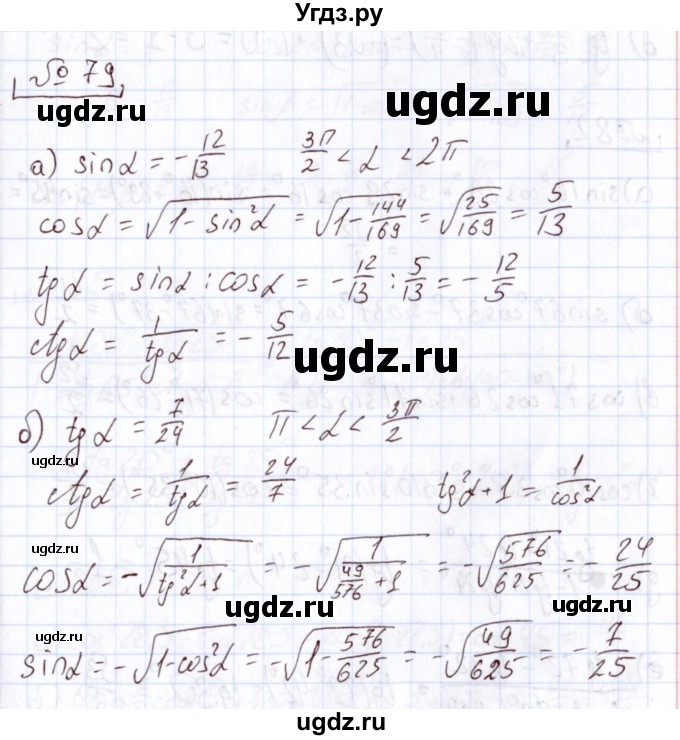 Угдз.ру
№ 79
ugdz.ru
ugdz.ru
а) sinα = -12/13    3π/2 < α < 2π
cosα = √(1-sin²α) = √(1-144/169) = √(25/169) = 5/13
ugdz.ru
tgα = sinα : cosα = -12/13 : 5/13 = -12/5
ctgα = 1/tgα = -5/12
ugdz.ru
б) tgα = 7/24    π < α < 3π/2
ugdz.ru
ugdz.ru
ctgα = 1/tgα = 24/7    tg²α+1 = 1/cos²α
ugdz.ru
cosα = -√(1/(tg²α+1)) = -√(1/(49/576+1)) = -√(576/625) = -24/25
ugdz.ru
ugdz.ru
ugdz.ru
sinα = -√(1-cos²α) = -√(1-576/625) = -√(49/625) = -7/25
ugdz.ru